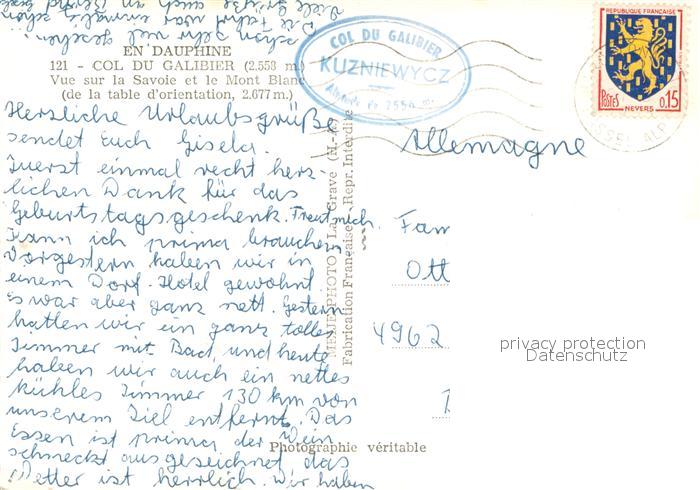 schon sehr viel gesehen.
Die Fahrt war einmalig schön
Viele Grüße auch an
EN DAUPHINE
121 - COL DU GALIBIER (2.558 m.)
Vue sur la Savoie et le Mont Blanc
(de la table d'orientation, 2.677 m.)
COL DU GALIBIER
KUZNIEWYCZ
Altitude de 2556 m.
REPUBLIQUE FRANÇAISE
POSTES
0,15
NEVERS
Herzliche Urlaubsgrüße
sendet Euch Gisela.
Zuerst einmal recht herz-
lichen Dank für das
Geburtstagsgeschenk. Freut mich.
Kann ich prima brauchen.
Vorgestern haben wir in
einem Dorf-Hotel gewohnt.
Es war aber ganz nett. Gestern
hatten wir ein ganz tolles
Zimmer mit Bad, und heute
haben wir auch ein nettes
kühles Zimmer 130 km von
unserem Ziel entfernt. Das
Essen ist prima der Wein
schmeckt ausgezeichnet das
Wetter ist herrlich. Wir haben
MEJE-PHOTO - La Grave (H.-A.)
Fabrication Française - Repr. Interdite
Allemagne
Fam
Ott
4962
privacy protection
Datenschutz
Photographie véritable